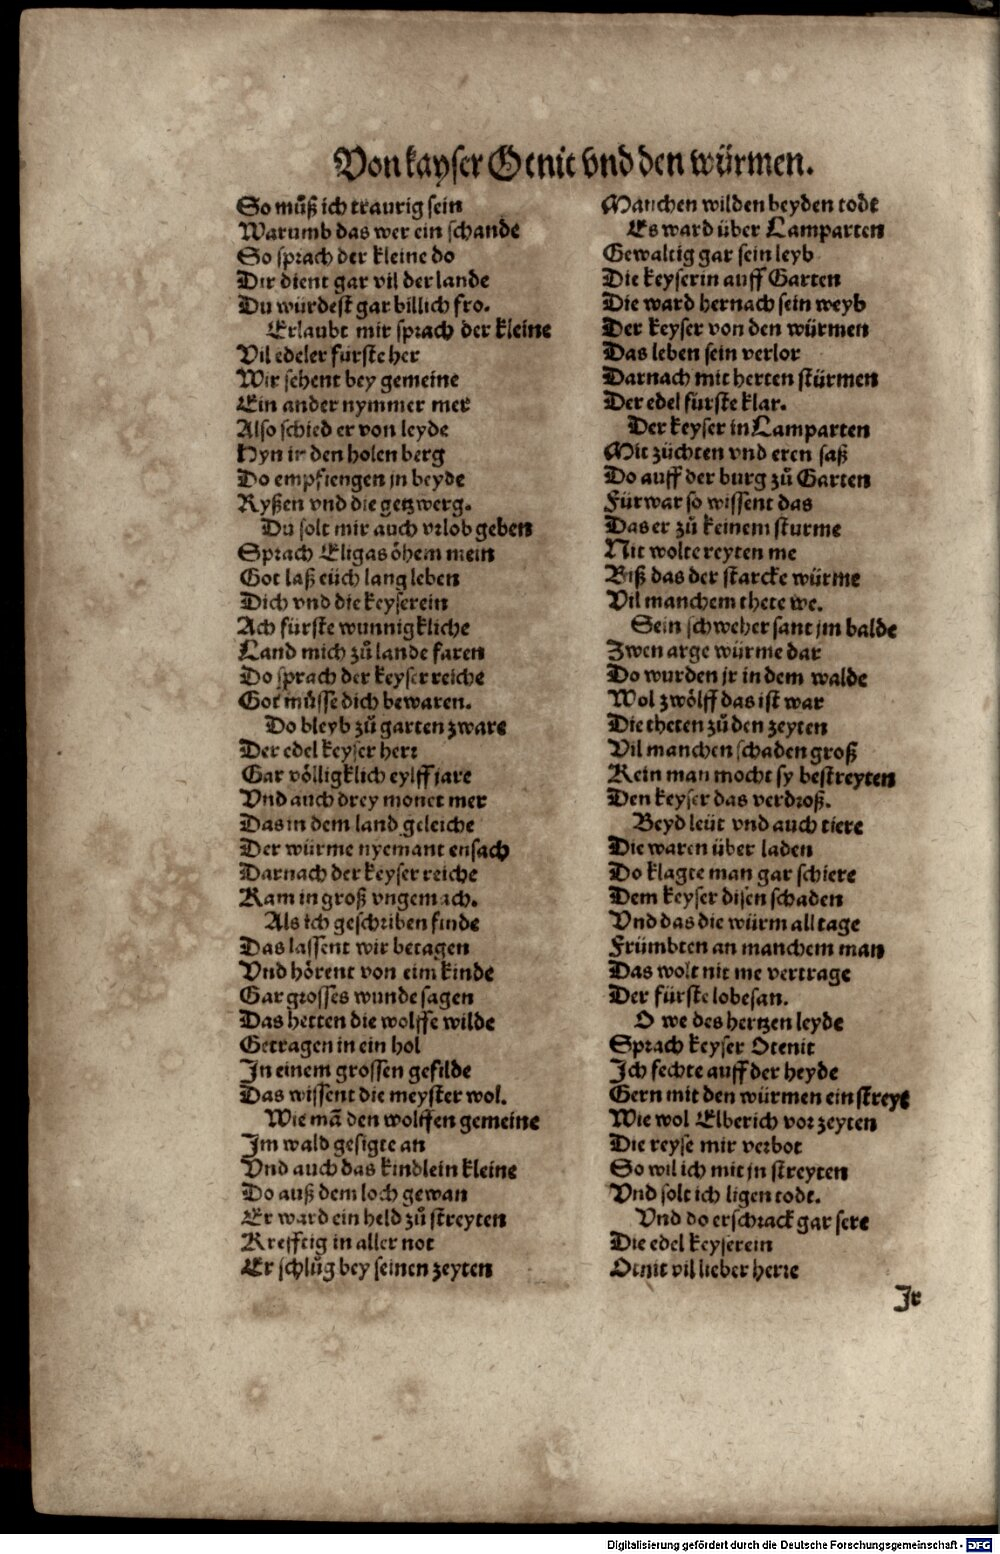 Von kayser Otnit vnd den würmen.
So můß ich traurig sein
Warumb das wer ein schande
So sprach der kleine do
Dir dient gar vil der lande
Du würdest gar billich fro.
Erlaubt mir sprach der kleine
Vil edeler fürste her
Wir sehent bey gemeine
Ein ander nymmer mer
Also schied er von leyde
Hyn in den holen berg
Do empfiengen jn beyde
Ryßen vnd die getzwerg.
Du solt mir auch vrlob geben
Sprach Eligas öhem mein
Got laß eüch lang leben
Dich vnd die keyserein
Ach fürste wunnigkliche
Land mich zů lande faren
Do sprach der keyser reiche
Got müsse dich bewaren.
Do bleyb zů garten zware
Der edel keyser herr
Gar völligklich eylff jare
Vnd auch drey monet mer
Das in dem land geleiche
Der würme nyemant ensach
Darnach der keyser reiche
Kam in groß vngemach.
Als ich geschriben finde
Das lassent wir betagen
Vnd hörent von eim kinde
Gar grosses wunde sagen
Das hetten die wolffe wilde
Getragen in ein hol
In einem grossen gefilde
Das wissent die meyster wol.
Wie mā den wolffen gemeine
Im wald gesigte an
Vnd auch das kindlein kleine
Do auß dem loch gewan
Er ward ein held zů streyten
Krefftig in aller not
Er schlůg bey seinen zeyten
Manchen wilden beyden todt
Es ward über Lamparten
Gewaltig gar sein leyb
Die keyserin auff Garten
Die ward hernach sein weyb
Der keyser von den würmen
Das leben sein verlor
Darnach mit herten stürmen
Der edel fürste klar.
Der keyser in Lamparten
Mit züchten vnd eren saß
Do auff der burg zů Garten
Fürwar so wissent das
Das er zů keinem sturme
Nit wolte reyten me
Biß das der starcke würme
Vil manchem thete we.
Sein schweher sant jm balde
Zwen arge würme dar
Do wurden jr in dem walde
Wol zwölff das ist war
Die theten zů den zeyten
Vil manchen schaden groß
Kein man mocht sy bestreyten
Den keyser das verdroß.
Beyd leüt vnd auch tiere
Die waren über laden
Do klagte man gar schiere
Dem keyser disen schaden
Vnd das die würm all tage
Frümbten an manchem man
Das wolt nit me vertrage
Der fürste lobesan.
O we des hertzen leyde
Sprach keyser Otenit
Ich fechte auff der heyde
Gern mit den würmen ein streyt
Wie wol Elberich vor zeyten
Die reyse mir verbot
So wil ich mit jn streyten
Vnd solt ich ligen todt.
Vnd do erschrack gar sere
Die edel keyserein
Otnit vil lieber herre
Ir
Digitalisierung gefördert durch die Deutsche Forschungsgemeinschaft - DFG